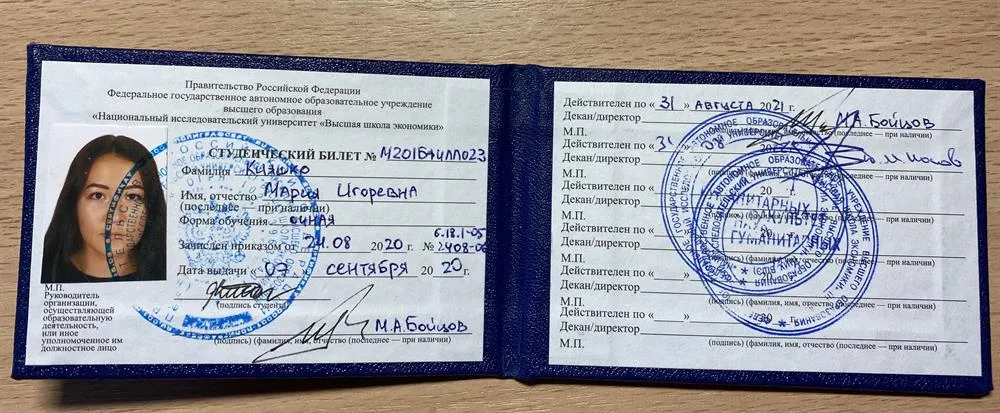 Правительство Российской Федерации
Федеральное государственное автономное образовательное учреждение
высшего образования
«Национальный исследовательский университет «Высшая школа экономики»
СТУДЕНЧЕСКИЙ БИЛЕТ № М201Б4ИЛЛ023
Фамилия Кизико
Имя, отчество Мария Игоревна
(последнее — при наличии)
Форма обучения очная
Зачислен приказом от 24.08 2020 г. № 6.18.1-05
2408-
Дата выдачи 07 сентября 2020 г.
(подпись студента)
М.П.
Руководитель
организации,
осуществляющей
образовательную
деятельность,
или иное
уполномоченное им
должностное лицо
М.А.Бойцов
(подпись) (фамилия, имя, отчество (последнее — при наличии)
Действителен по « 31 » августа 2021 г.
Декан/директор М.А.Бойцов
М.П. (последнее — при наличии)
Действителен по « 31 08
Декан/директор
М.П. (подпись)
Действителен по « 20 г.
Декан/директор
М.П. (подпись)
Действителен по «
Декан/директор
М.П. (подпись) (фамилия
Действителен по « » 20 г.
Декан/директор
М.П. (подпись) (фамилия, имя, отчество
Действителен по « » 20 г.
Декан/директор
М.П. (подпись) (фамилия, имя, отчество (последнее — при наличии)
ГУМАНИТАРНЫХ